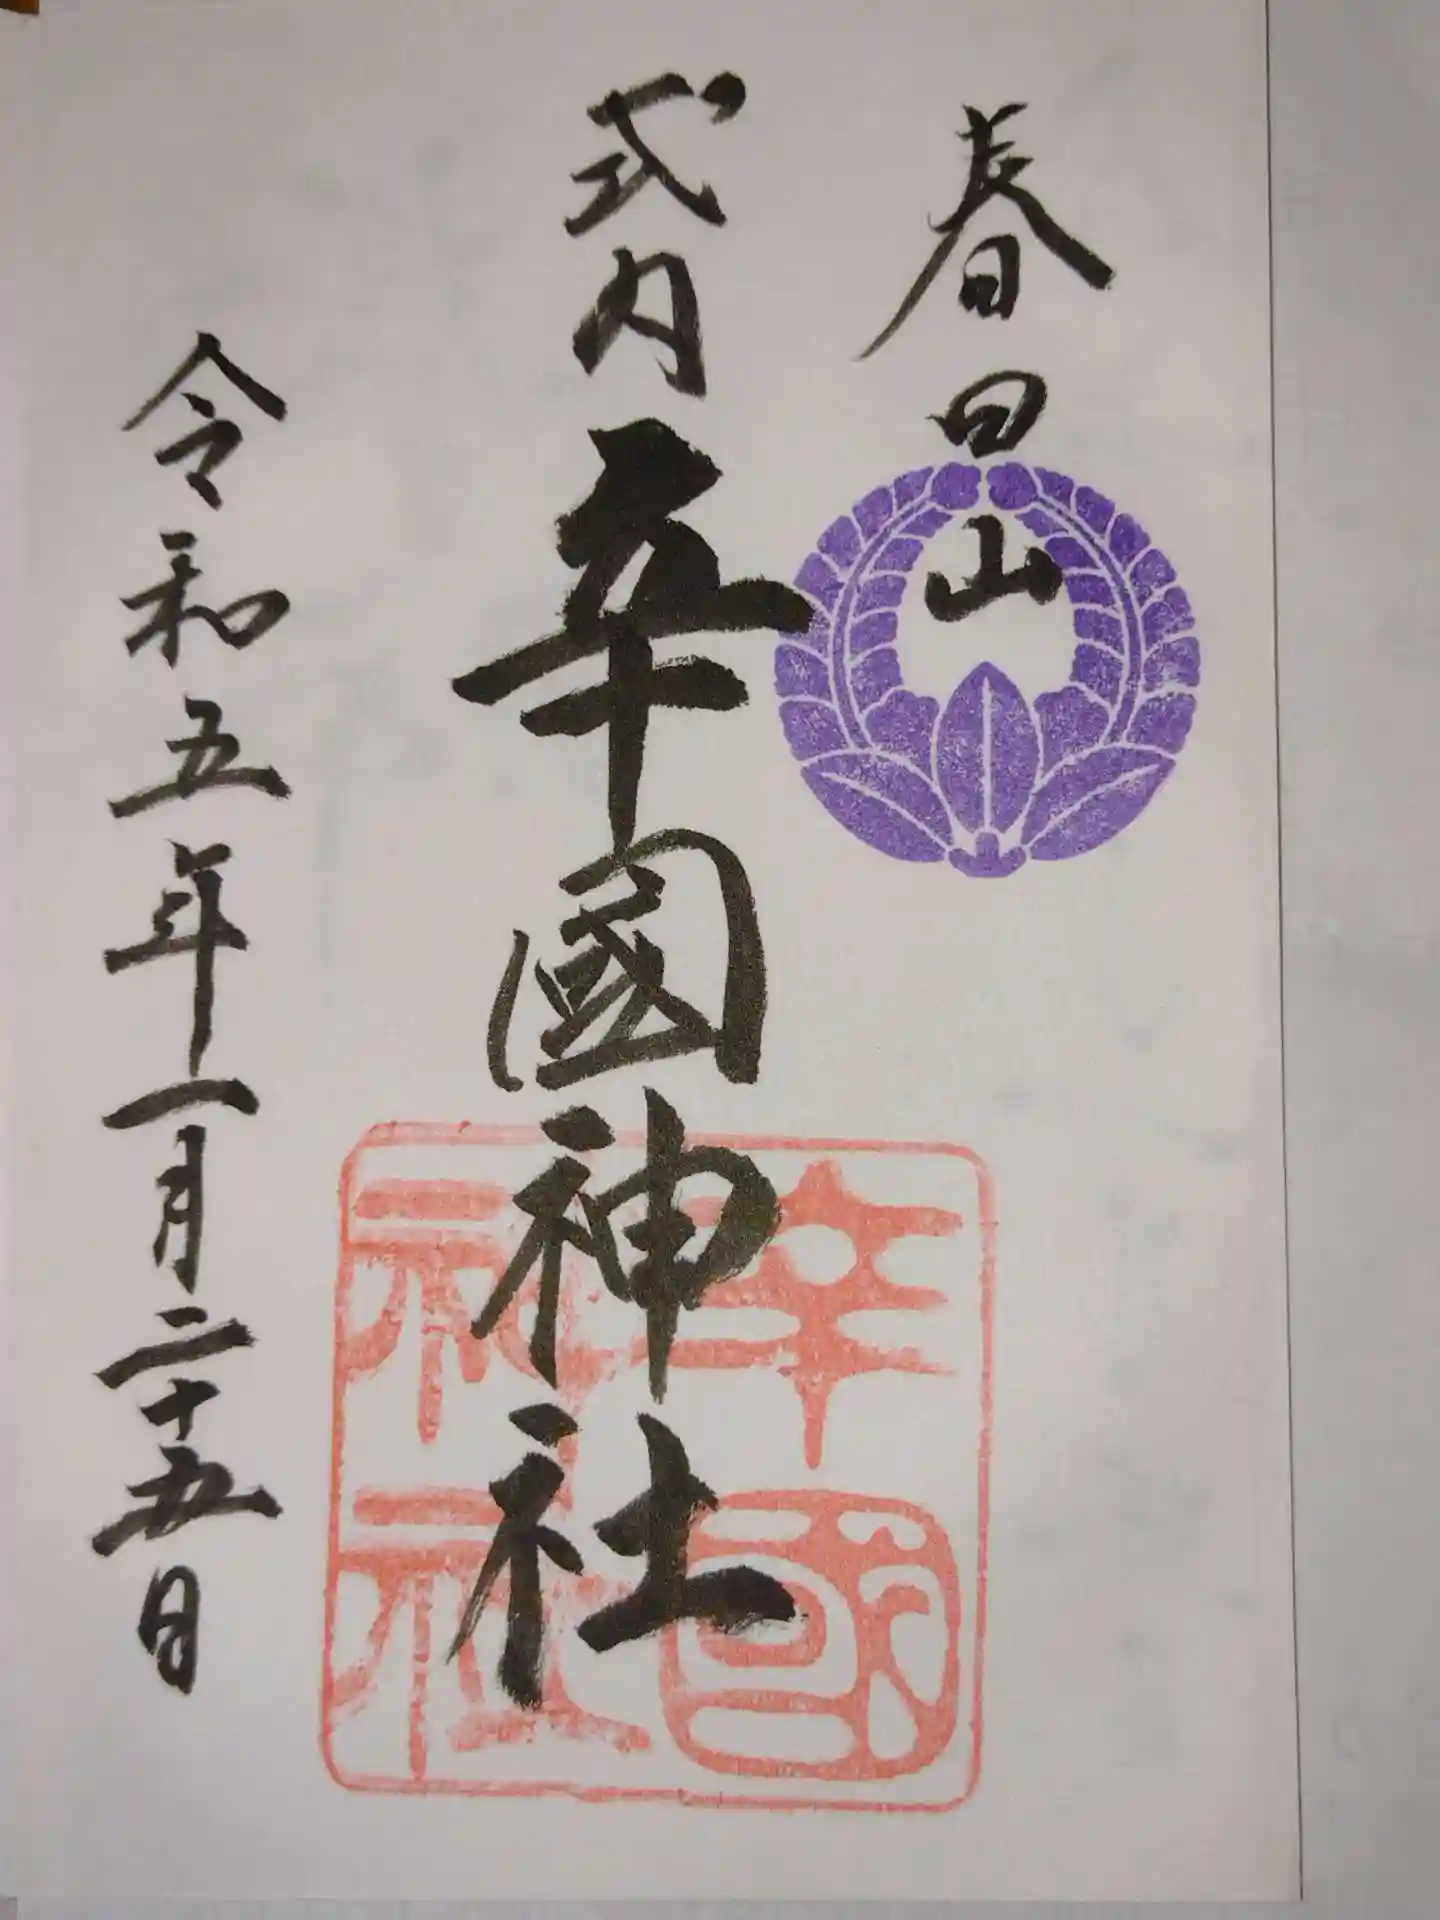 春日山
式内辛國神社
辛國
神社
令和五年一月二十五日